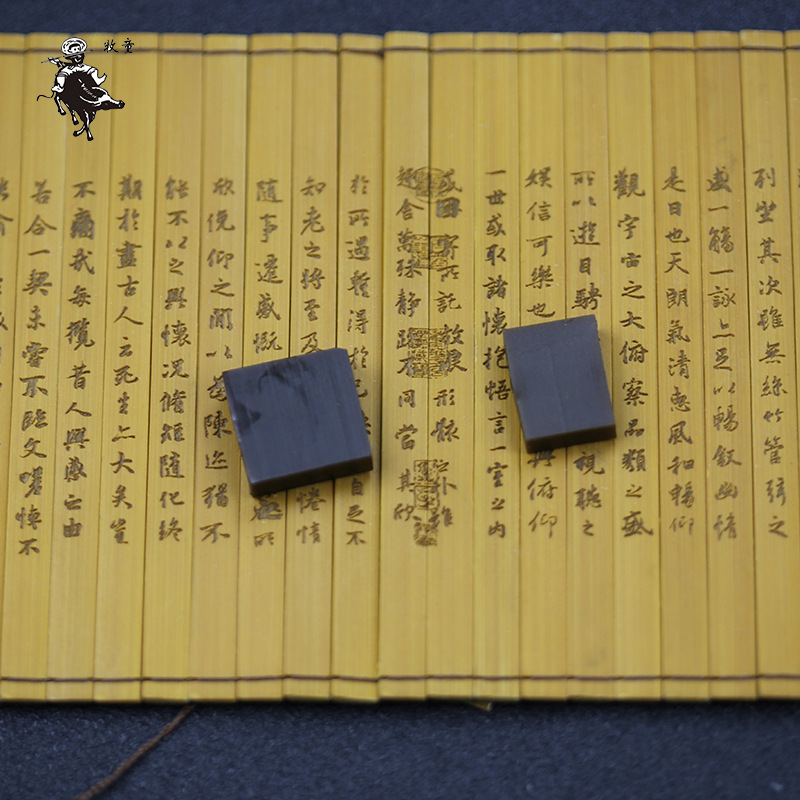 牧童
列坐其次雖無絲竹管弦之
盛一觴一詠亦足以暢敘幽情
是日也天朗氣清惠風和暢仰
觀宇宙之大俯察品類之盛
所以遊目騁視聽之
娛信可樂也與俯仰
一世或取諸懷抱悟言一室之內
或因寄所託放浪形骸之外雖
趣舍萬殊靜躁不同當其欣
於所遇暫得於己自足不
知老之將至及倦情
隨事遷感慨所
欣俛仰之閒以為陳迹猶不
能不以之興懷況脩短隨化終
期於盡古人云死生亦大矣豈
不痛哉每攬昔人興感之由
若合一契未嘗不臨文嗟悼不